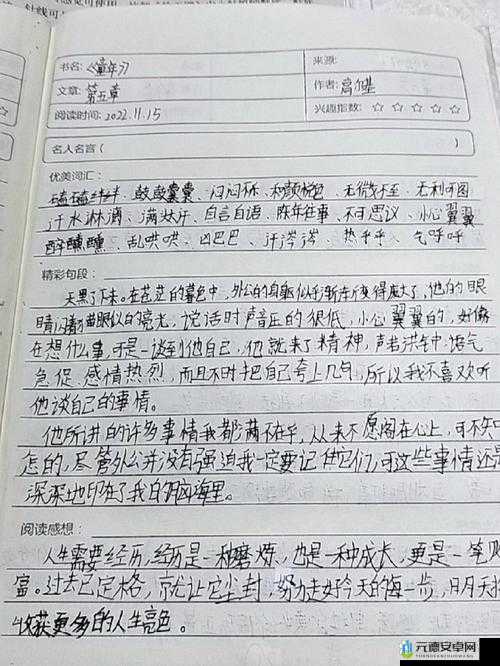 书名：《童年》
来源：
文章：第五章
作者：高尔基
阅读时间：2022.11.15
兴趣指数：☆ ☆ ☆ ☆ ☆
名人名言（ ）
优美词汇：
磕磕绊绊、鼓鼓囊囊、闷闷不乐、和颜悦色、无微不至、无利可图
汗水淋漓、满头大汗、自言自语、陈年往事、不可思议、小心翼翼
醉醺醺、乱哄哄、凶巴巴、汗涔涔、热乎乎、气呼呼
精彩句段：
天黑了下来。在苍茫的暮色中，外公的身躯似乎渐渐变得庞大了，他的眼
睛闪着猫眼似的亮光，说话时声音压的很低，小心翼翼的，好像
在想什么事，可是一谈到他自己，他就来了精神，声若洪钟，语气
急促、感情热烈，而且不时把自己夸上几句，所以我不喜欢听
他谈自己的事情。
他所讲的许多事情我都满不在乎，从来不愿搁在心上，可不知
怎的，尽管外公并没有强迫我一定要记住它们，可这些事情还是
深深地印在了我的脑海里。
阅读感想：
人生需要经历，经历是一种磨炼，也是一种成长，更是一笔财
富。过去已定格，就让它尘封，努力走好今天的每一步，明天
收获更多的人生亮色。
元德安卓网